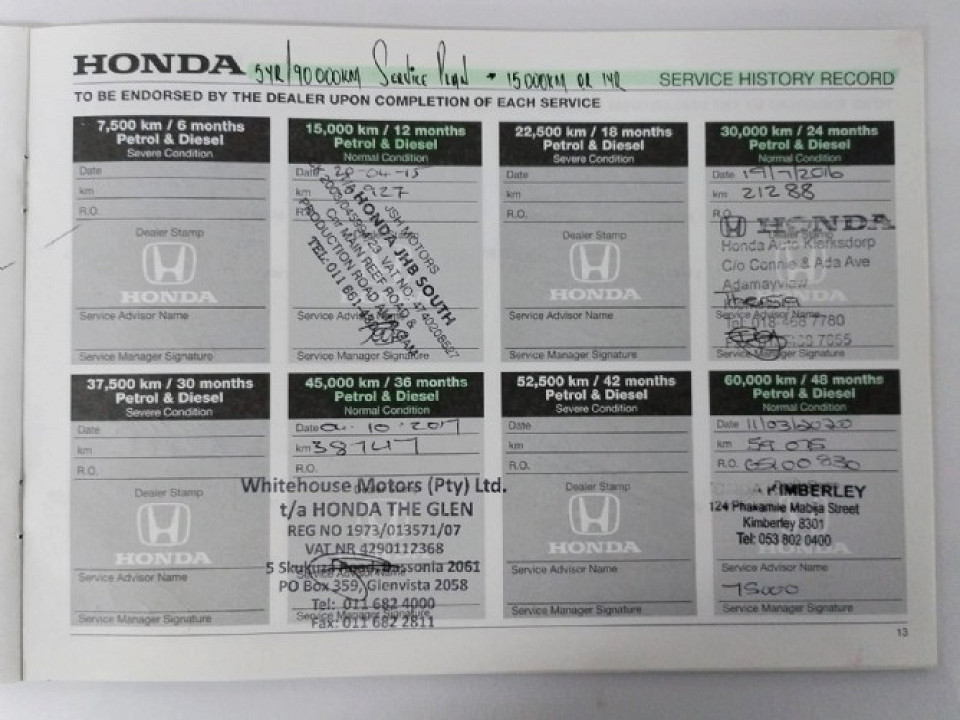 HONDA 5YR/90 000KM Service Plan * 15 000KM OR 1YR SERVICE HISTORY RECORD
TO BE ENDORSED BY THE DEALER UPON COMPLETION OF EACH SERVICE
7,500 km / 6 months
Petrol & Diesel
Severe Condition
Date
km
R.O.
Dealer Stamp
HONDA
Service Advisor Name
Service Manager Signature
15,000 km / 12 months
Petrol & Diesel
Normal Condition
Date 28-04-15
km
R.O.
JSH MOTORS
HONDA JHB SOUTH
VAT NO: 4740208527
Cnr MAIN REEF ROAD &
PRODUCTION ROAD
TEL: 011 661
Service Advisor Name
Service Manager Signature
22,500 km / 18 months
Petrol & Diesel
Severe Condition
Date
km
R.O.
Dealer Stamp
HONDA
Service Advisor Name
Service Manager Signature
30,000 km / 24 months
Petrol & Diesel
Normal Condition
Date 19/7/2016
km 21288
R.O.
HONDA
Honda Auto Klerksdorp
C/o Connie & Ada Ave
Adamayview
HONDA
Service Advisor Name
Tel: 018 468 7780
Service Manager Signature
37,500 km / 30 months
Petrol & Diesel
Severe Condition
Date
km
R.O.
Dealer Stamp
HONDA
Service Advisor Name
Service Manager Signature
45,000 km / 36 months
Petrol & Diesel
Normal Condition
Date 04-10-2017
km 38747
R.O.
Whitehouse Motors (Pty) Ltd.
t/a HONDA THE GLEN
REG NO 1973/013571/07
VAT NR 4290112368
5 Skukuza Road, Bassonia 2061
Service Advisor Name
PO Box 359, Glenvista 2058
Tel: 011 682 4000
Service Manager Signature
Fax: 011 682 2811
52,500 km / 42 months
Petrol & Diesel
Severe Condition
Date
km
R.O.
Dealer Stamp
HONDA
Service Advisor Name
Service Manager Signature
60,000 km / 48 months
Petrol & Diesel
Normal Condition
Date 11/03/2020
km 59 075
R.O.
KIMBERLEY
124 Phakamile Mabija Street
Kimberley 8301
Tel: 053 802 0400
HONDA
Service Advisor Name
75000
Service Manager Signature
13